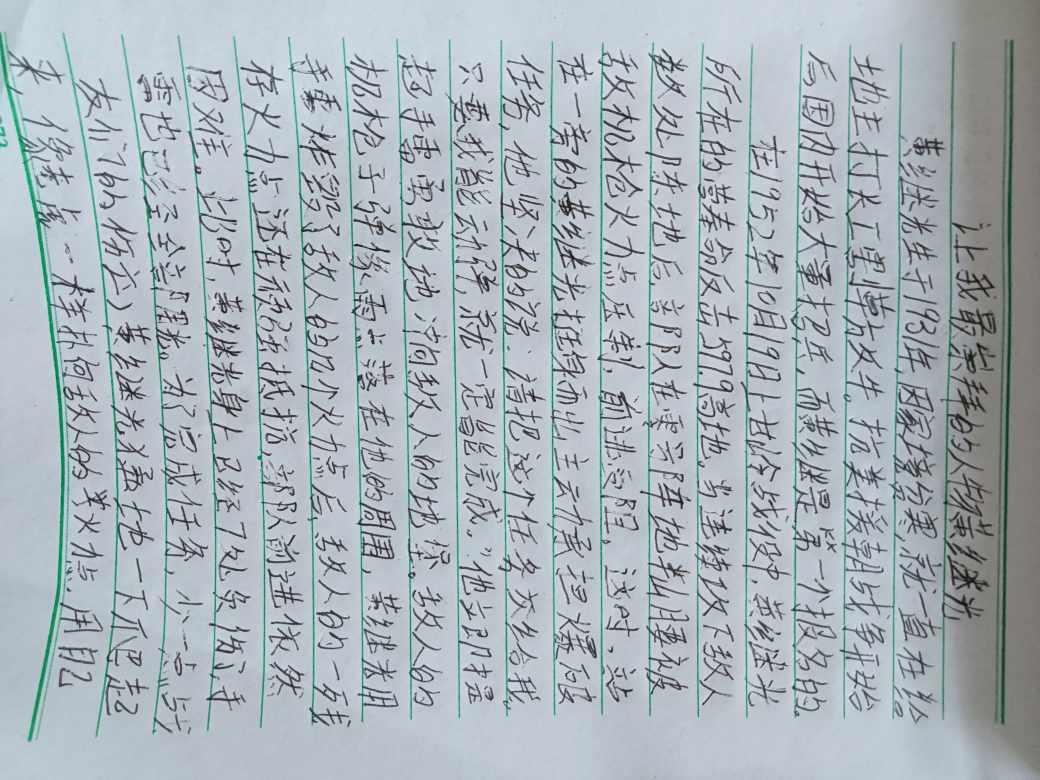 让我最崇拜的人物黄继光
黄继光生于1931年,因家境贫寒,就一直在给
地主打长工,割草放牛。抗美援朝战争开始
后国内开始大量招兵,而黄继光是第一个报名的。
在1952年10月19日上甘岭战役中,黄继光
所在的营奉命反击597.9高地。当连续攻下敌人
数处阵地后,部队在零号阵地半山腰被
敌机枪火力点压制,前进受阻。这时,站
在一旁的黄继光挺身而出,主动承担爆破
任务,他坚决的说:请把这个任务交给我,
只要我能动弹,就一定能完成。"他立即提
起手雷勇敢地冲向敌人的地堡。敌人的
机枪子弹像雨点落在他的周围,黄继光用
手雷炸毁了敌人的几个火力点后,敌人的一残
存火力点还在顽强抵抗,部队前进依然
困难。此时,黄继光身上已经7处负伤,手
雷也已经全部用光。为了完成任务,少一点战
友们的伤亡,黄继光猛地一下爬起
来,像疯虎一样扑向敌人的某火点,用自己